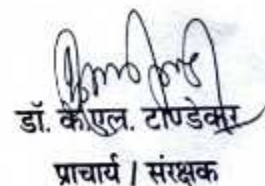 डॉ. के.एल. टाण्डेकर
प्राचार्य / संरक्षक